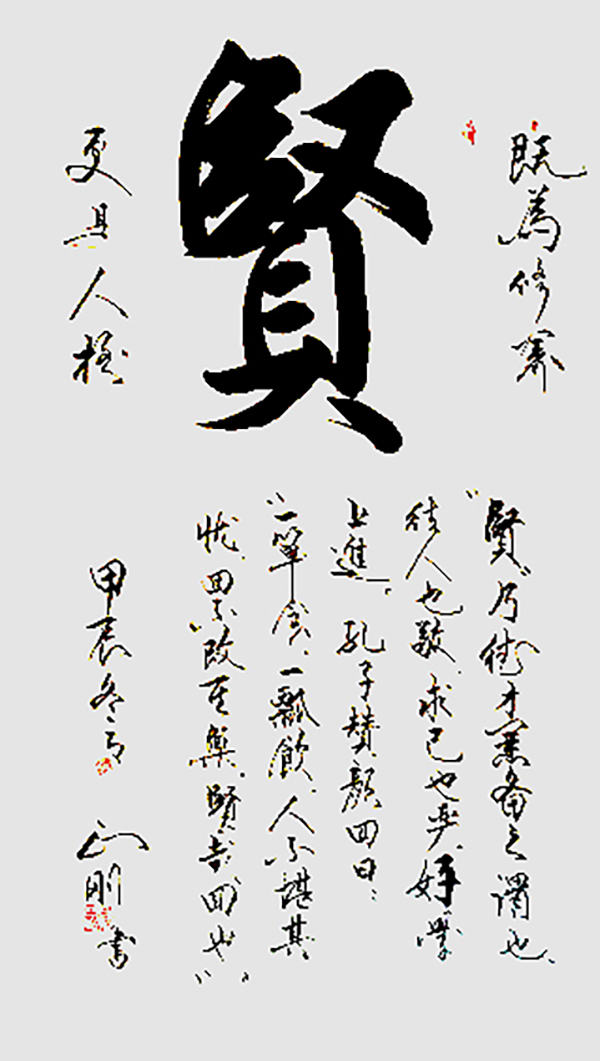 既為修
賢
更具人
"賢"乃德才兼備之謂也、
待人也敬、求己也、好學
上進。孔子贊顏回曰：
"一簞食、一瓢飲、人不堪其
忧、回不改其樂、賢哉回也"。
甲辰冬月
剛書